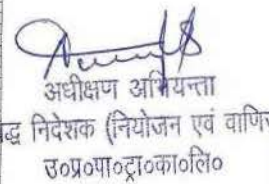 अधीक्षण अभियन्ता
द्ध निदेशक (नियोजन एवं वाणि
उ०प्र०पा०ट्रा०का०लि०